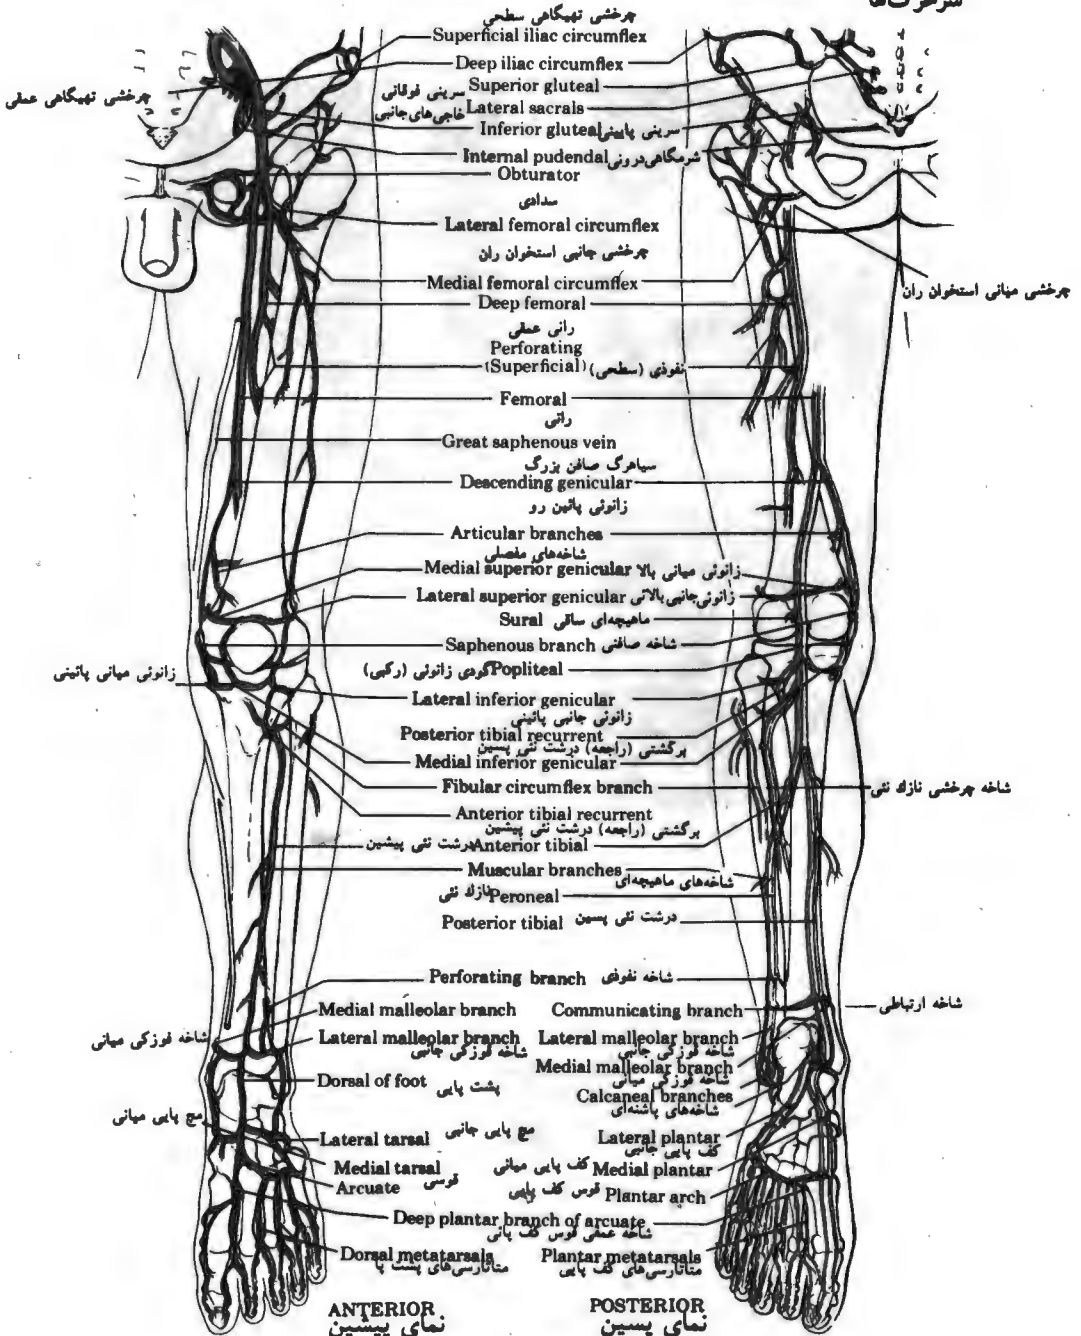 سرخرگ‌ها
چرخشی تهیگاهی سطحی
Superficial iliac circumflex
Deep iliac circumflex
چرخشی تهیگاهی عمقی
Superior gluteal سرینی فوقانی
Lateral sacrals خاجی‌های جانبی
Inferior gluteal سرینی پایینی
Internal pudendal شرمگاهی درونی
Obturator
سدادی
Lateral femoral circumflex
چرخشی جانبی استخوان ران
Medial femoral circumflex
چرخشی میانی استخوان ران
Deep femoral
رانی عمقی
Perforating
(Superficial) نفوذی (سطحی)
Femoral
رانی
Great saphenous vein
سیاهرگ صافن بزرگ
Descending genicular
زانوئی پائین رو
Articular branches
شاخه‌های مفصلی
Medial superior genicular زانوئی میانی بالا
Lateral superior genicular زانوئی جانبی بالائی
Sural ماهیچه‌ای ساقی
Saphenous branch شاخه صافنی
Popliteal گودی زانوئی (رکبی)
زانوئی میانی پائینی
Lateral inferior genicular
زانوئی جانبی پائینی
Posterior tibial recurrent
برگشتی (راجعه) درشت نئی پسین
Medial inferior genicular
Fibular circumflex branch
شاخه چرخشی نازك نئی
Anterior tibial recurrent
برگشتی (راجعه) درشت نئی پیشین
Anterior tibial درشت نئی پیشین
Muscular branches شاخه‌های ماهیچه‌ای
Peroneal نازك نئی
Posterior tibial درشت نئی پسین
Perforating branch شاخه نفوذی
Medial malleolar branch
Communicating branch
شاخه ارتباطی
شاخه قوزکی میانی
Lateral malleolar branch
شاخه قوزکی جانبی
Lateral malleolar branch
شاخه قوزکی جانبی
Medial malleolar branch
شاخه قوزکی میانی
Dorsal of foot پشت پایی
Calcaneal branches
شاخه‌های پاشنه‌ای
مچ پایی میانی
Lateral tarsal مچ پایی جانبی
Lateral plantar
کف پایی جانبی
Medial tarsal
Medial plantar کف پایی میانی
Arcuate قوسی
Plantar arch قوس کف پایی
Deep plantar branch of arcuate
شاخه عمقی قوس کف پائی
Dorsal metatarsals
متاتارسی‌های پشت پا
Plantar metatarsals
متاتارسی‌های کف پایی
ANTERIOR
نمای پیشین
POSTERIOR
نمای پسین